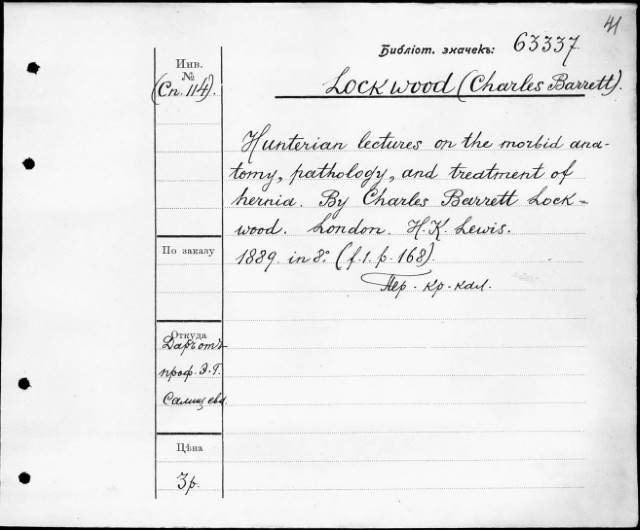 41
Библіот. значекъ: 63337.
Инв.
№
(Сп. 114).
Lockwood (Charles Barrett).
Hunterian lectures on the morbid ana-
tomy, pathology, and treatment of
hernia. By Charles Barrett Lock-
wood. London. H. K. Lewis.
1889. in 8º (f. 1. p. 168).
Пер. кр. кал.
По заказу
Откуда
Даръ отъ
проф. Э. Г.
Салищева.
Цѣна
3 р.